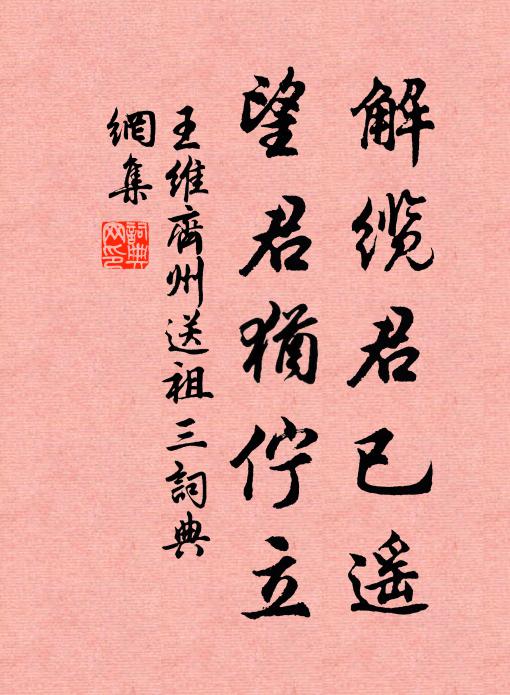 解缆君已遥
望君犹伫立
王维齊州送祖三詞典
網集
詞典
网印